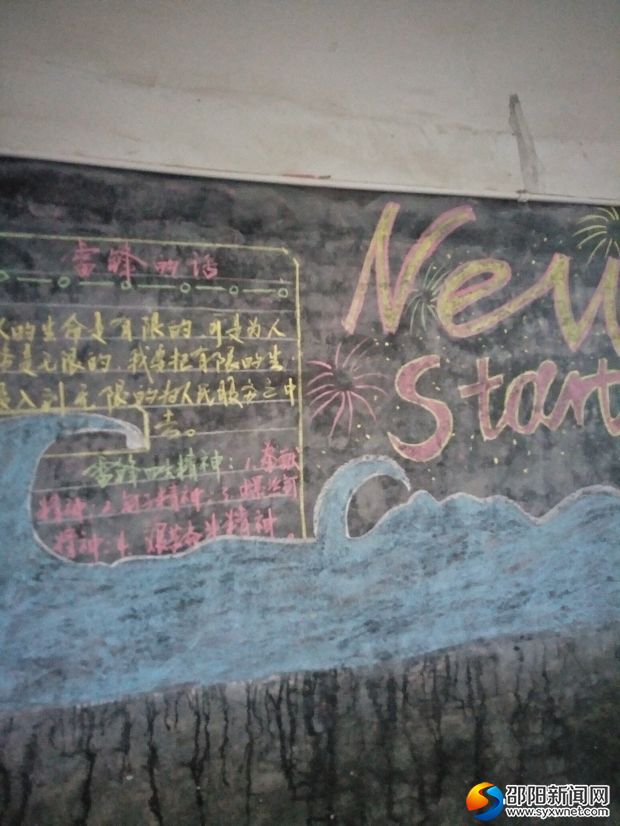 雷锋的话
人的生命是有限的,可是为人
务是无限的,我要把有限的生
投入到无限的为人民服务之中
去。
雷锋四大精神:1.奉献
精神;2.钉子精神;3.螺丝钉
精神;4.艰苦奋斗精神。
New
Start
邵阳新闻网
www.syxwnet.com